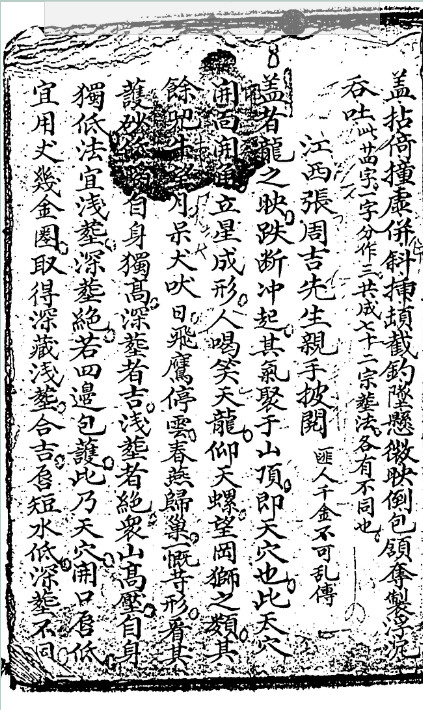 盖拈倚撞 併斜揷 截釣墜懸微映倒包領奪製浮沉
吞吐此廿四字一字分作三共成七十二宗塟法各有不同也
江西張周吉先生親手披閱 匪人千金不可乱傳
盖者龍之映跌断冲起其氣聚于山頂即天穴也此天穴
開 開 立星成形人喝笑天龍仰天螺望岡獅之類其
餘 月呆犬吠日飛鷹停雲春燕歸巢 形看其
護砂 自身獨高深塟者吉浅塟者絶衆山高壓自身
獨低法宜浅塟深塟絶若四邊包護此乃天穴開口 低
宜用犬幾金圏取得深藏浅塟合吉 短水低深塟不同